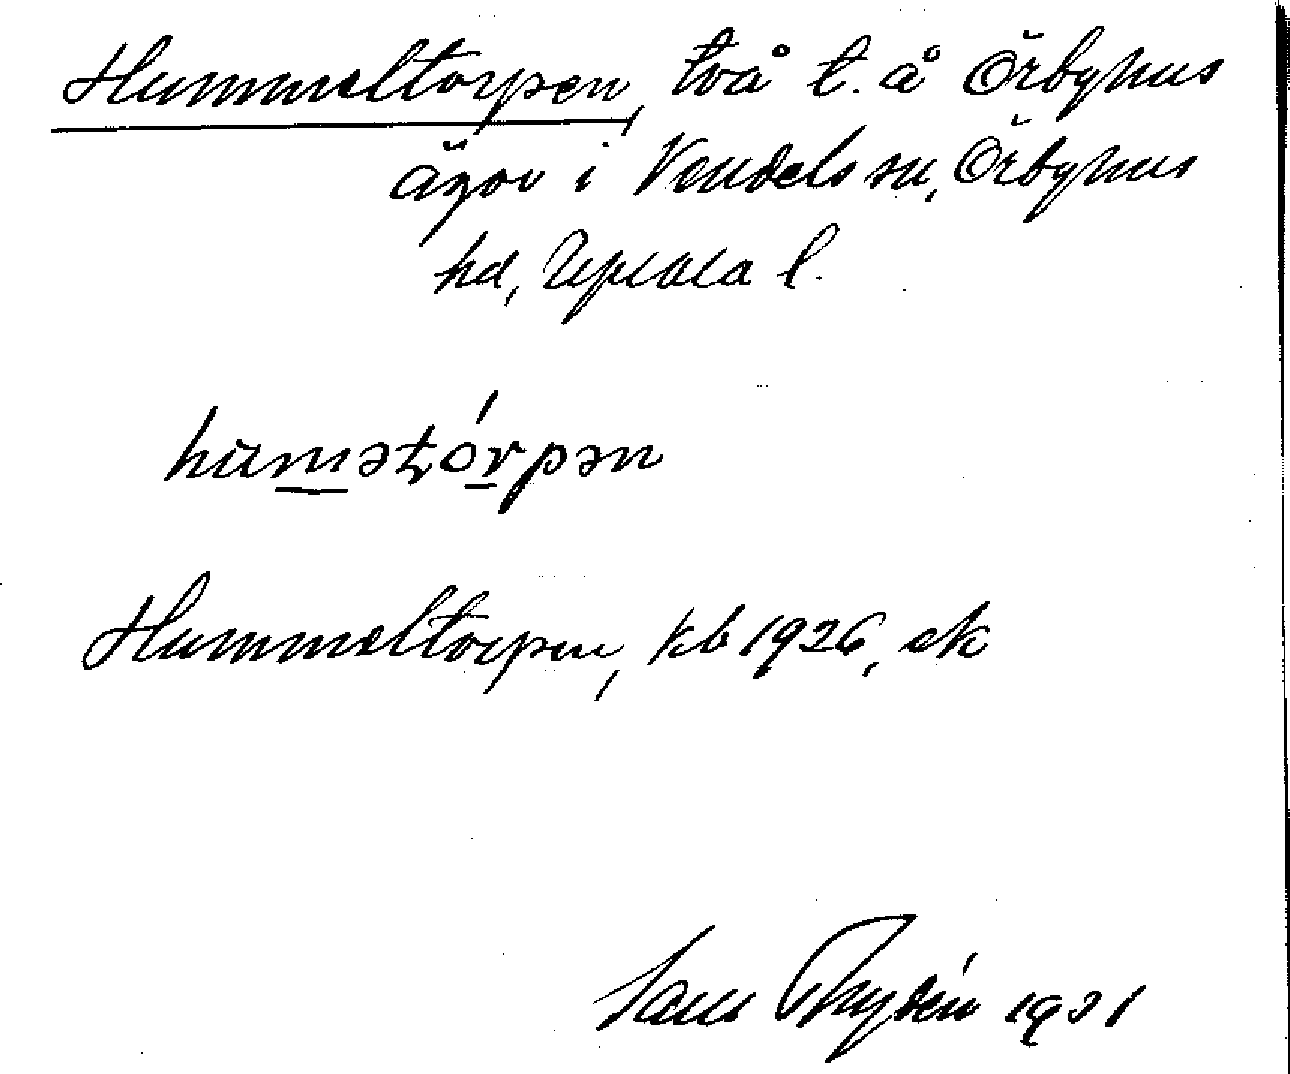 Hummeltorpen, två t. å Örbyhus
ägor i Vendels sn, Örbyhus
hd, Uppsala l.
huməʈórpən
Hummeltorpen, kb 1926, ek
Sam Thydén 1931